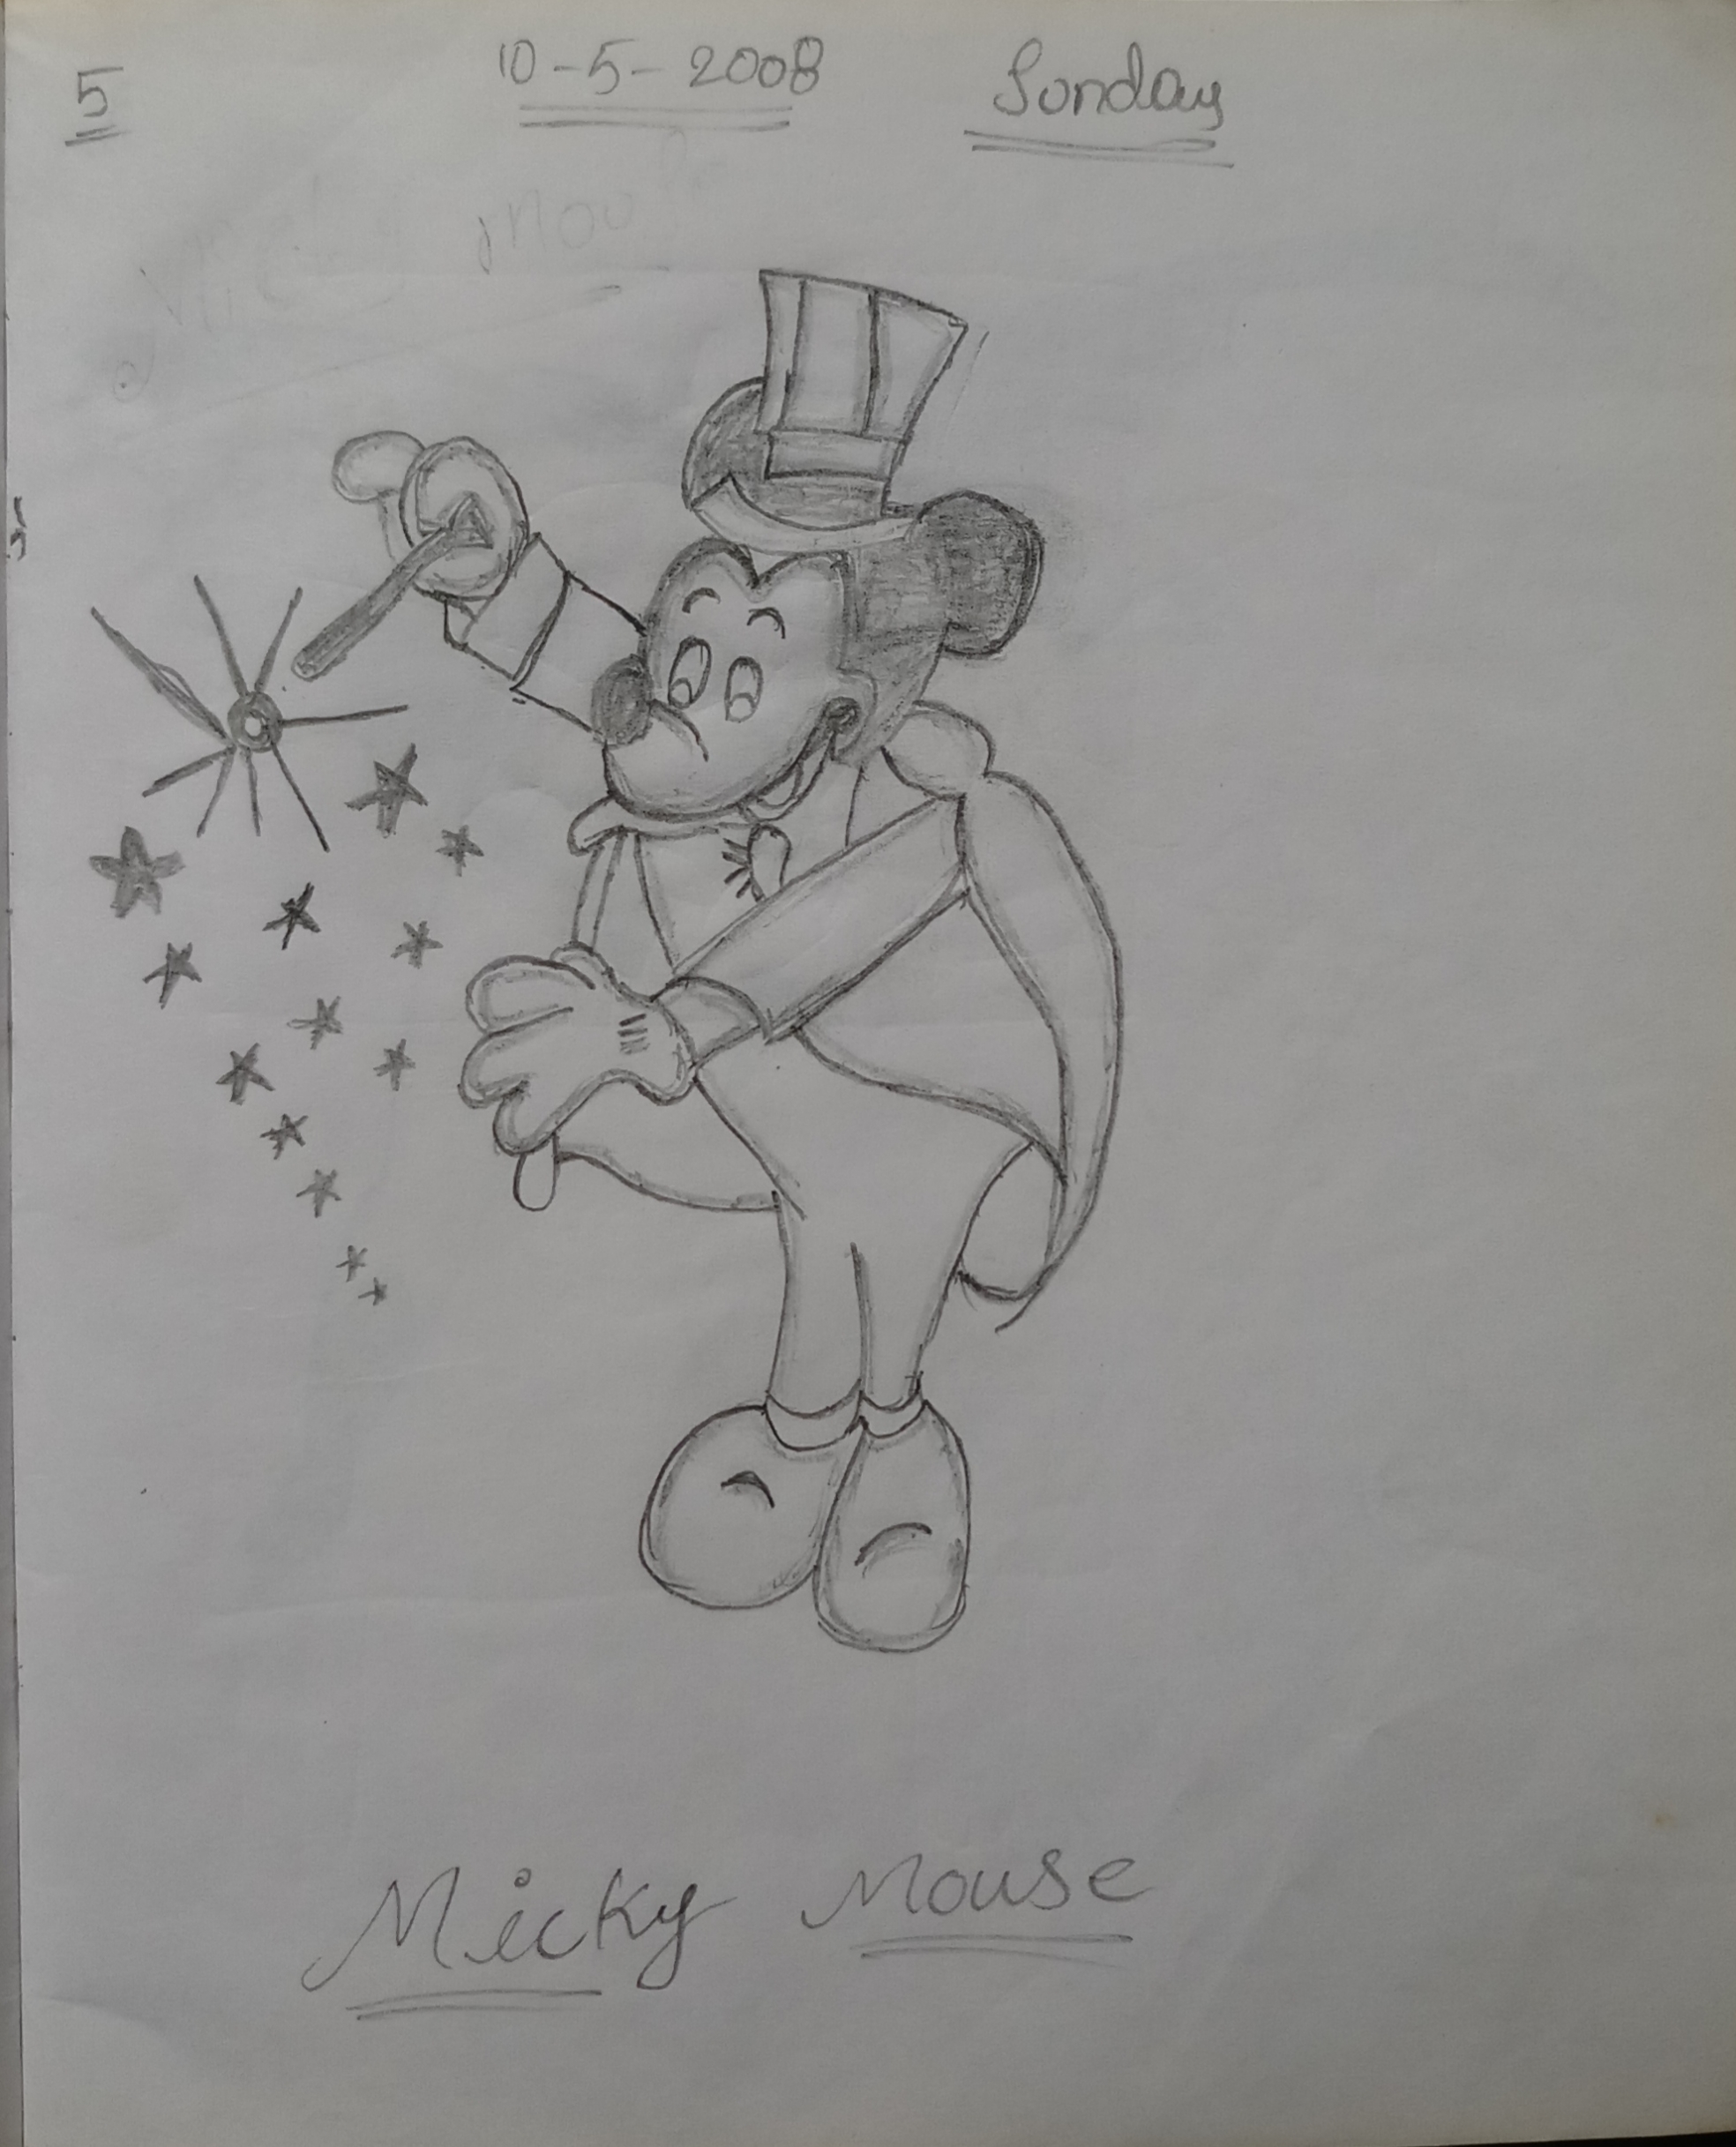 5 10-5-2008 Sonday
Micky Mouse
Micky Mouse